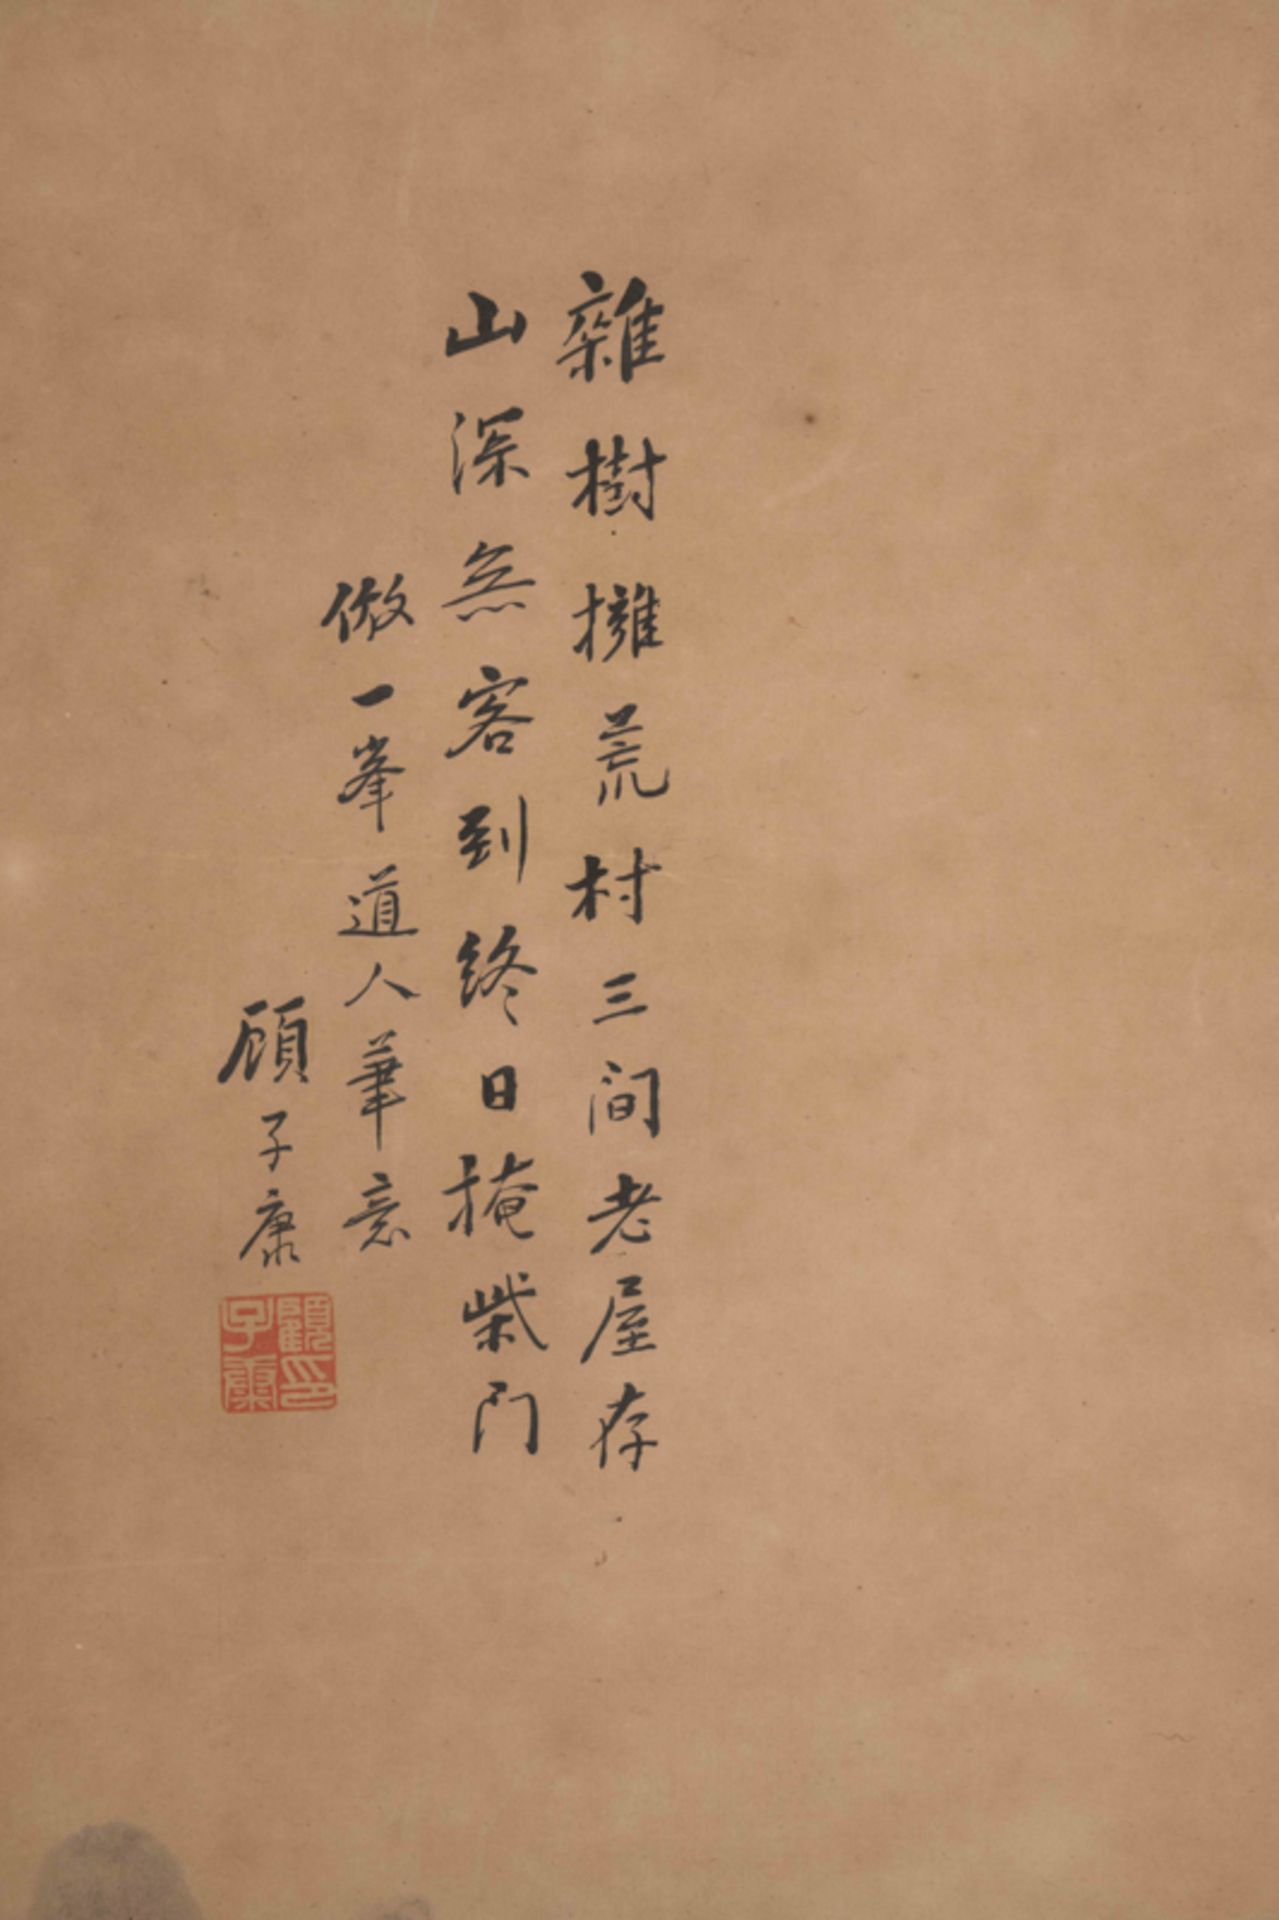 雜樹擁荒村三间老屋存
山深無客到終日掩柴门
倣一峯道人筆意
顾子康
顧印子康